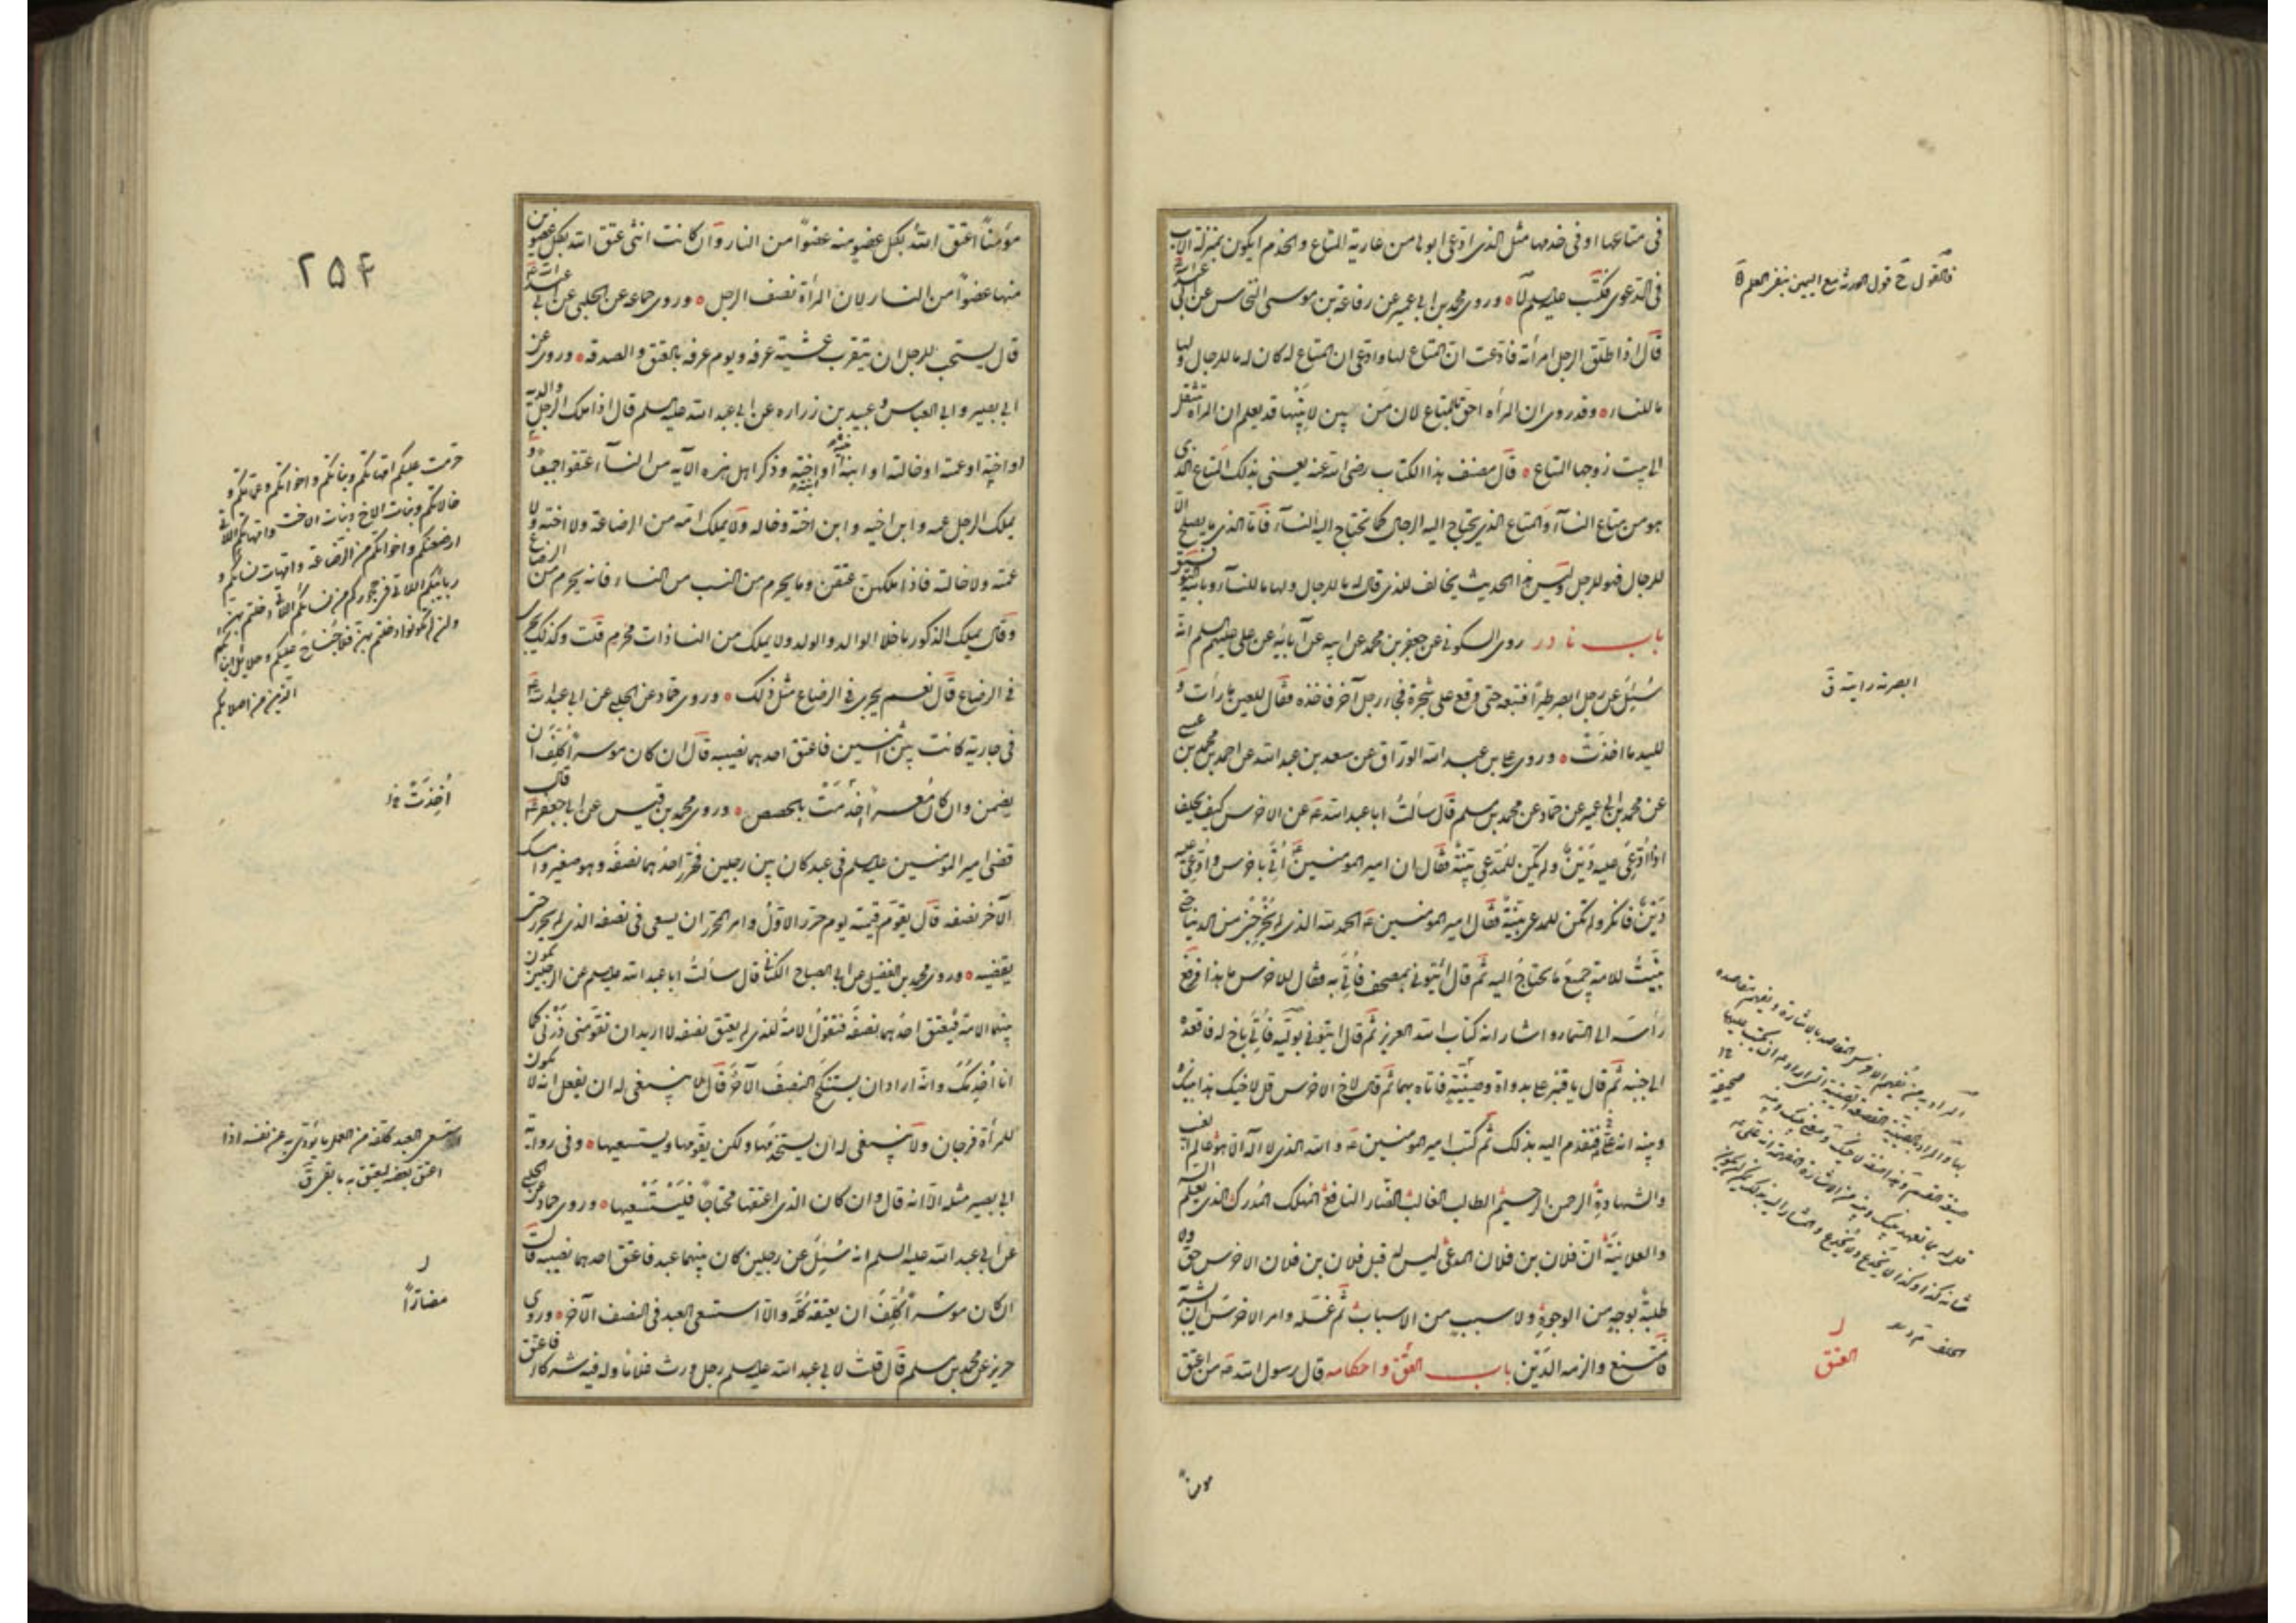 فى متاعها او فى خدمها مثل الذى ادعى ابوها من عارية المتاع والخدم ايكون بمنزلة الاب
فى الدعوى فكتب عليه السلم لا ه وروى محمد بن ابى عمير عن رفاعة بن موسى النخاس عن ابى عبد الله ع
قال اذا طلق الرجل امرأته فادعت ان المتاع لها وادعى ان المتاع له كان له ما للرجال ولها
ما للنساء ه وقد روى ان المرأة احق بالمتاع لان من بين لابتيها قد يعلم ان المرأة تنقل
الى بيت زوجها المتاع ه قال مصنف هذا الكتاب رضى الله عنه يعنى بذلك المتاع الذى
هو من متاع النساء والمتاع الذى يحتاج اليه الرجال كما تحتاج اليه النساء فاما الذى لا يصلح الا
للرجال فهو للرجل وليس هذا الحديث بخالف للذى قال له ما للرجال ولها ما للنساء وبالله التوفيق
باب نادر روى السكونى عن جعفر بن محمد عن ابيه عن آبائه عن على عليهم السلم انه
سُئِلَ عن رجل ابصر طيرًا فتبعه حتى وقع على شجرة فجاء رجل آخر فاخذه فقال للعين ما رأت و
لليد ما اخذت ه وروى على بن عبد الله الوراق عن سعد بن عبد الله عن احمد بن محمد بن عيسى
عن محمد بن ابى عمير عن حماد عن محمد بن مسلم قال سألت ابا عبد الله ع عن الاخرس كيف يحلف
اذا ادُّعِىَ عليه دَيْن ولم يكن للمدعى بينة فقال ان امير المومنين ع اُتِىَ باخرس وادُّعِىَ عليه
دَيْن فانكر ولم تكن للمدعى بينة فقال امير المومنين ع الحمد لله الذى لم يُخْرِجْنى من الدنيا حتى
بَيَّنْتُ للامة جميع ما يحتاج اليه ثم قال ائتونى بمصحف فأُتِىَ به فقال للاخرس ما هذا فرفع
رأسه الى السماء واشار انه كتاب الله العزيز ثم قال ايتونى بوليه فأُتِىَ باخ له فاقعده
الى جنبه ثم قال يا قنبر على بدواة وصينية فاتاه بهما ثم قال لاخ الاخرس قل لاخيك هذا بينك
وبينه انه على فتقدم اليه بذلك ثم كتب امير المومنين ع والله الذى لا اله الا هو عالم الغيب
والشهادة الرحمن الرحيم الطالب الغالب الضار النافع المهلك المدرك الذى يعلم السر
والعلانية ان فلان بن فلان المدعى ليس له قبل فلان بن فلان الاخرس حق ولا
طلبة بوجه من الوجوه ولا سبب من الاسباب ثم غسله وامر الاخرس ان يشربه
فامتنع والزمه الدين باب العتق واحكامه قال رسول الله ص من اعتق
فالقول ح قول الورثة مع اليمين بنفى العلم
ابصرته رايته ق
العتق
مومنًا
مؤمنًا اعتق الله بكل عضو منه عضوًا من النار وان كانت انثى عتق الله بكل عضوين
منها عضوًا من النار لان المرأة نصف الرجل ه وروى حماد عن الحلبى عن ابى عبد الله ع
قال يستحب للرجل ان يتقرب عشية عرفة ويوم عرفة بالعتق والصدقة ه وروى عن
ابى بصير وابى العباس وعبيد بن زرارة عن ابى عبد الله عليه السلم قال اذا ملك الرجل والديه
او اخته او عمته او خالته او ابنة اخيه او ابنة اخته وذكر اهل هذه الآية من النساء عتقوا جميعًا و
يملك الرجل عمه وابن اخيه وابن اخته وخاله ولا يملك امه من الرضاعة ولا اخته ولا
عمته ولا خالته فاذا ملكهن عتقن وما يحرم من النسب من النساء فانه يحرم من الرضاع
وقال يملك الذكور ما خلا الوالد والولد ولا يملك من النسا ذات محرم قلت وكذلك يجرى
فى الرضاع قال نعم يجرى فى الرضاع مثل ذلك ه وروى حماد عن الحلبى عن ابى عبد الله ع
فى جارية كانت بين اثنين فاعتق احدهما نصيبه قال ان كان موسرًا كُلِّفَ ان
يضمن وان كان معسرًا خدمت بالحصص ه وروى محمد بن قيس عن ابى جعفر ع قال
قضى امير المؤمنين عليه السلم فى عبد كان بين رجلين فحرر احدهما نصفه وهو صغير وامسك
الآخر نصفه قال يقوّم قيمته يوم حرر الاول وامر المحرر ان يسعى فى نصفه الذى لم يحرر حتى
يقضيه ه وروى محمد بن الفضيل عن ابى الصباح الكنانى قال سألت ابا عبد الله عليه السلم عن الرجلين تكون
بينهما الامة فيعتق احدهما نصفه فتقول الامة للذى لم يعتق نصفه لا اريد ان تقومنى ذَرْنى كما
انا اخدمك وانه اراد ان يستنكح النصف الآخر قال لا ينبغى له ان يفعل انه لا تكون
للمرأة فرجان ولا ينبغى له ان يستخدمها ولكن يقومها ويستسعيها ه وفى رواية
ابى بصير مثله الا انه قال وان كان الذى اعتقها محتاجًا فليستسعيها ه وروى حماد عن الحلبى
عن ابى عبد الله عليه السلم انه سُئِلَ عن رجلين كان بينهما عبد فاعتق احدهما نصيبه قال
ان كان موسرًا كُلِّفَ ان يعتقه كله والا استسعى العبد فى النصف الآخر ه وروى
حريز عن محمد بن مسلم قال قلت لابى عبد الله عليه السلم رجل ورث غلامًا وله فيه شركاء فاعتق
۲۵۴
حرمت عليكم امهاتكم وبناتكم واخواتكم وعماتكم و
خالاتكم وبنات الاخ وبنات الاخت وامهاتكم اللاتى
ارضعنكم واخواتكم من الرضاعة وامهات نسائكم و
ربائبكم اللاتى فى حجوركم من نسائكم اللاتى دخلتم بهن
فان لم تكونوا دخلتم بهن فلا جناح عليكم وحلائل ابنائكم
الذين من اصلابكم
اُخْذِمَتْ خ
استسعى العبد كلفه من العمل ما يؤدى به عن نفسه اذا
اعتق بعضه ليعتق به ما بقى ق
مضارًا